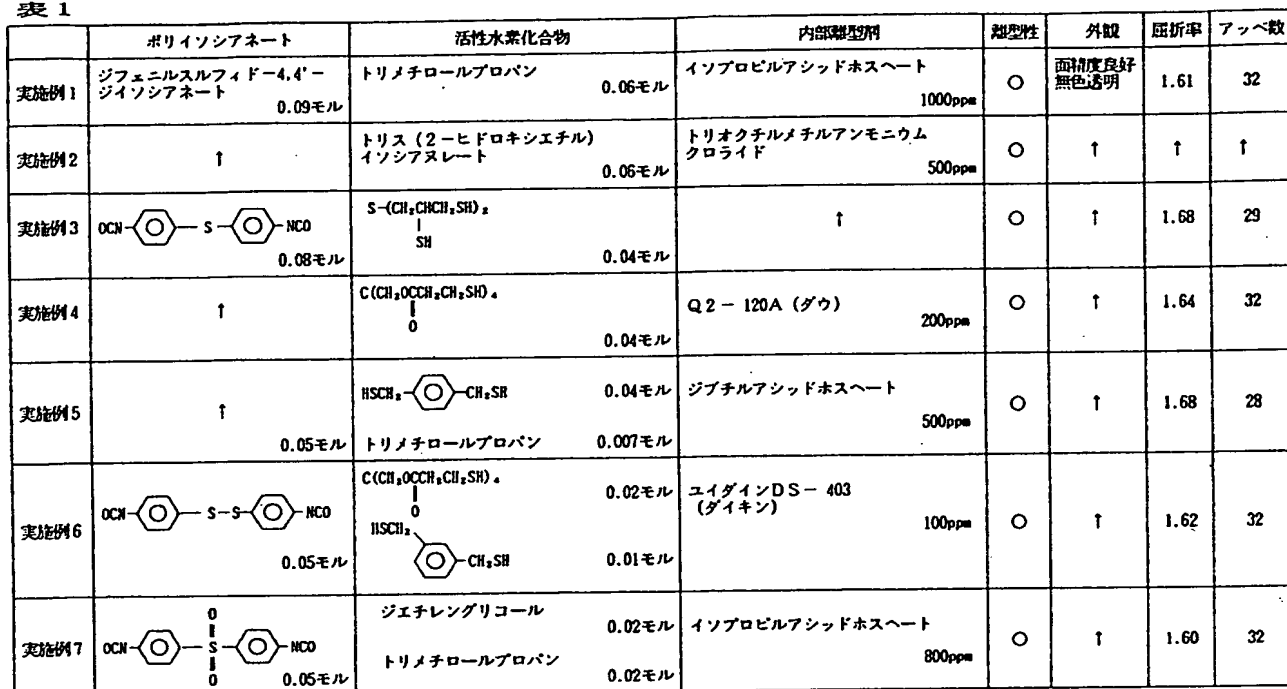 表 1
ポリイソシアネート 活性水素化合物 内部離型剤 離型性 外観 屈折率 アッベ数
実施例1
ジフェニルスルフィド-4,4'-
ジイソシアネート
0.09モル
トリメチロールプロパン
0.06モル
イソプロピルアシッドホスヘート
1000ppm
○
面精度良好
無色透明
1.61
32
実施例2
↑
トリス(2-ヒドロキシエチル)
イソシアヌレート
0.06モル
トリオクチルメチルアンモニウム
クロライド
500ppm
○
↑
↑
↑
実施例3
OCN S NCO
0.08モル
S-(CH₂CHCH₂SH)₂
SH
0.04モル
↑
○
↑
1.68
29
実施例4
↑
C(CH₂OCCH₂CH₂SH)₄
O
0.04モル
Q2-120A(ダウ)
200ppm
○
↑
1.64
32
実施例5
↑
0.05モル
HSCH₂ CH₂SH 0.04モル
トリメチロールプロパン 0.007モル
ジブチルアシッドホスヘート
500ppm
○
↑
1.68
28
実施例6
OCN S-S NCO
0.05モル
C(CH₂OCCH₂CH₂SH)₄
O
0.02モル
HSCH₂
CH₂SH 0.01モル
ユイダインDS-403
(ダイキン)
100ppm
○
↑
1.62
32
実施例7
O
OCN S NCO
O
0.05モル
ジエチレングリコール
0.02モル
トリメチロールプロパン
0.02モル
イソプロピルアシッドホスヘート
800ppm
○
↑
1.60
32